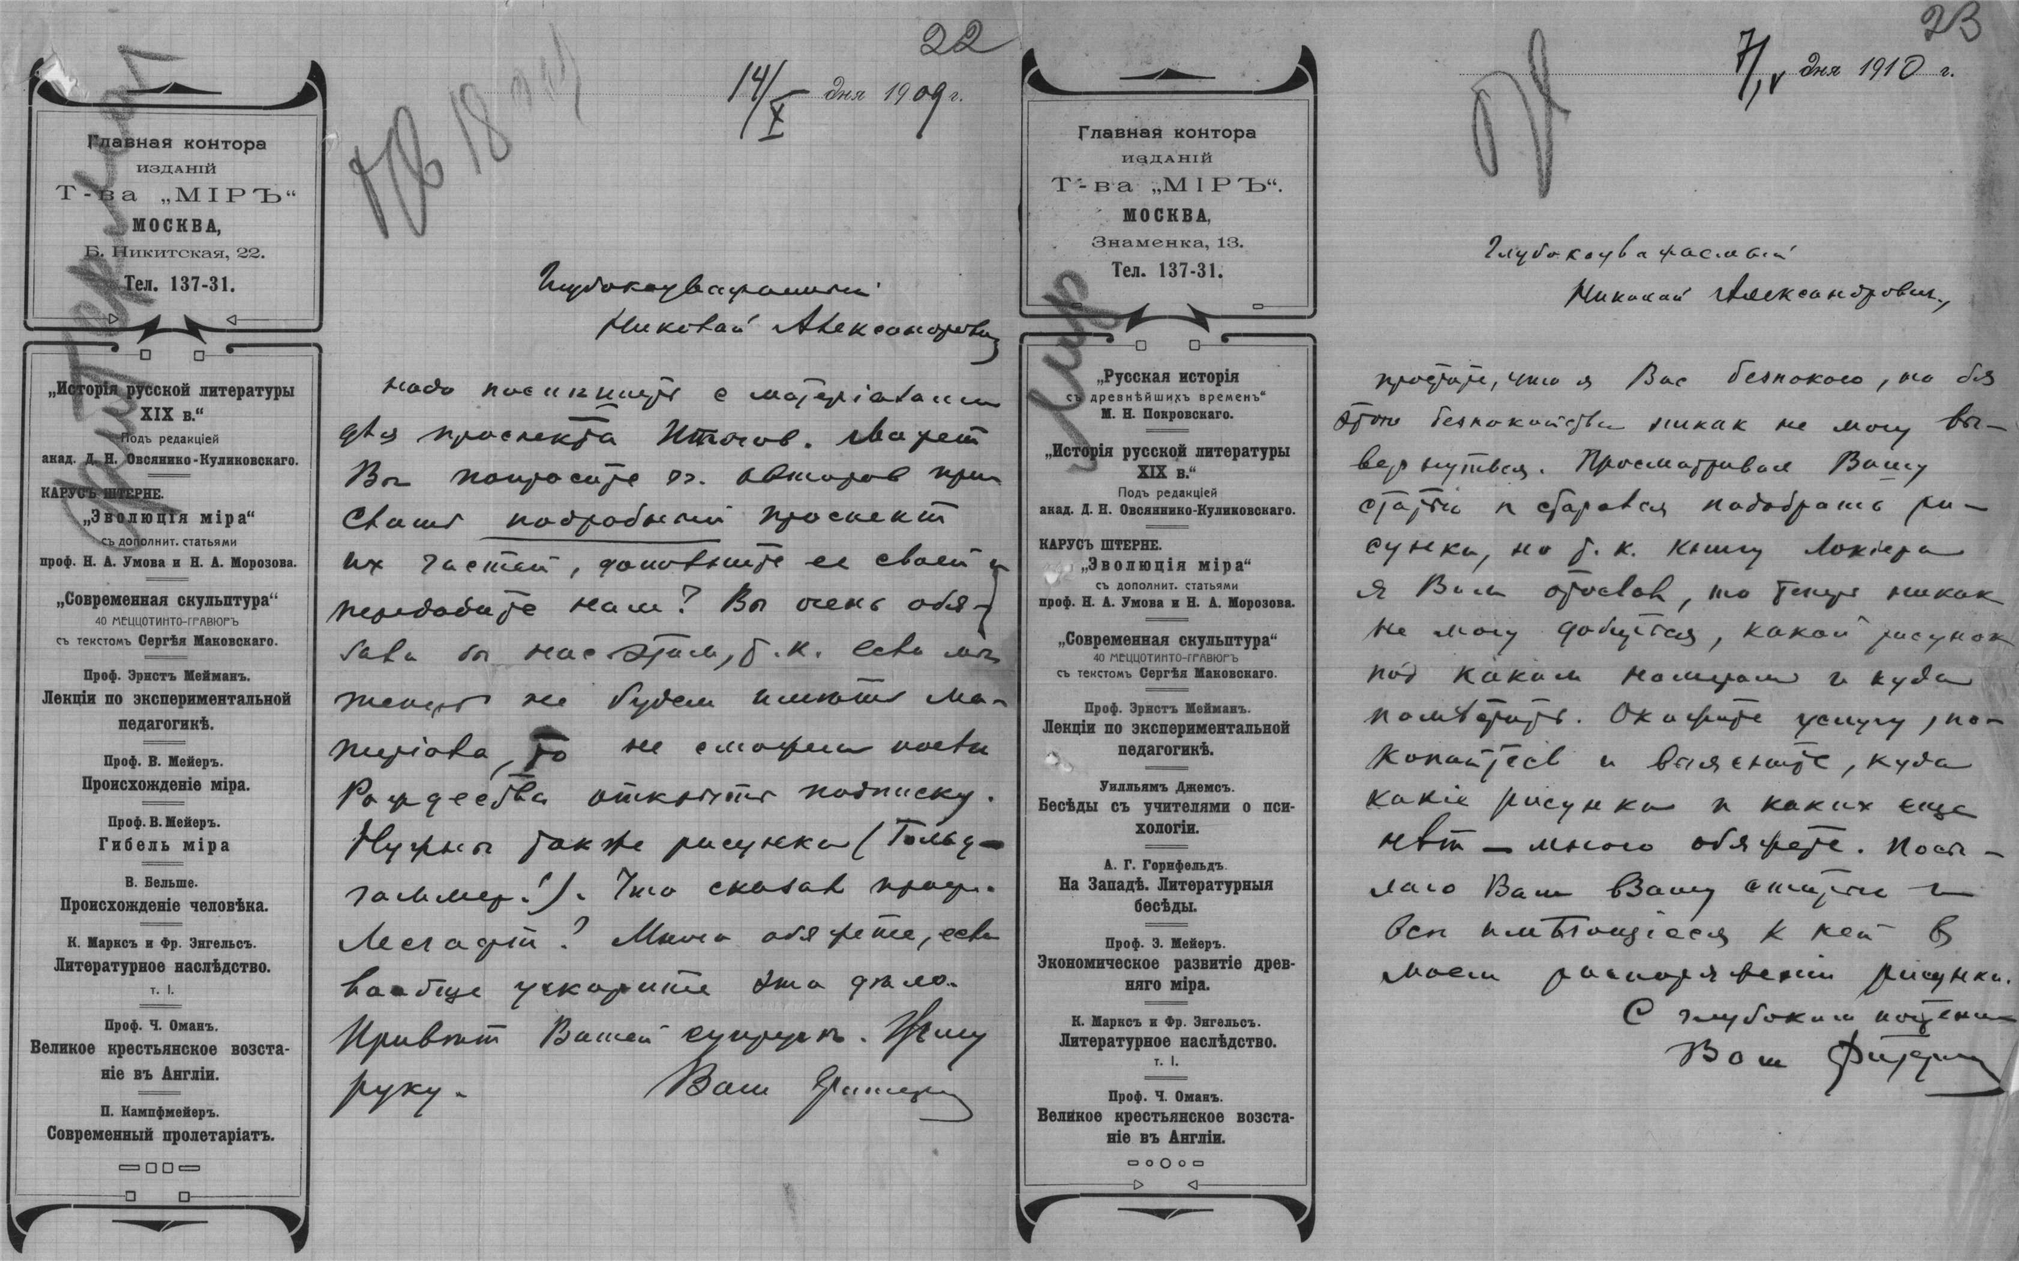 22
14/X дня 1909 г.
Отв 18
Главная контора
ИЗДАНІЙ
Т-ва „МІРЪ“
МОСКВА,
Б. Никитская, 22.
Тел. 137-31.
„Исторія русской литературы
XIX в.“
Подъ редакціей
акад. Д. Н. Овсянико-Куликовскаго.
КАРУСЪ ШТЕРНЕ.
„Эволюція міра“
съ дополнит. статьями
проф. Н. А. Умова и Н. А. Морозова.
„Современная скульптура“
40 МЕЦЦОТИНТО-ГРАВЮРЪ
съ текстомъ Сергѣя Маковскаго.
Проф. Эрнстъ Мейманъ.
Лекціи по экспериментальной
педагогикѣ.
Проф. В. Мейеръ.
Происхожденіе міра.
Проф. В. Мейеръ.
Гибель міра
В. Бельше.
Происхожденіе человѣка.
К. Марксъ и Фр. Энгельсъ.
Литературное наслѣдство.
т. I.
Проф. Ч. Оманъ.
Великое крестьянское возста-
ніе въ Англіи.
П. Кампфмейеръ.
Современный пролетаріатъ.
Глубокоуважаемый
Николай Александрович
Надо поспешить с матеріалами
для проспекта Итогов. Может
Вы попросите гг. авторов при
слать подробный проспект
их частей, дополните ее своей и
передадите нам? Вы очень обя-
зали бы нас этим, т. к. если мы
теперь не будем иметь ма-
теріала, то не сможем после
Рождества открыть подписку.
Нужны также рисунки (Гольд-
гаммер!). Что сказал проф.
Лесгафт? Много обяжете, если
вообще ускорите это дѣло.
Привѣт Вашей супругѣ. Жму
руку. Ваш
23
7/IV дня 1910 г.
Отв
Мир
Главная контора
ИЗДАНІЙ
Т-ва „МІРЪ“.
МОСКВА,
Знаменка, 13.
Тел. 137-31.
„Русская исторія
съ древнѣйшихъ временъ“
М. Н. Покровскаго.
„Исторія русской литературы
XIX в.“
Подъ редакціей
акад. Д. Н. Овсяннико-Куликовскаго.
КАРУСЪ ШТЕРНЕ.
„Эволюція міра“
съ дополнит. статьями
проф. Н. А. Умова и Н. А. Морозова.
„Современная скульптура“
40 МЕЦЦОТИНТО-ГРАВЮРЪ
съ текстомъ Сергѣя Маковскаго.
Проф. Эрнстъ Мейманъ.
Лекціи по экспериментальной
педагогикѣ.
Уилльямъ Джемсъ.
Бесѣды съ учителями о пси-
хологіи.
А. Г. Горнфельдъ.
На Западѣ. Литературныя
бесѣды.
Проф. Э. Мейеръ.
Экономическое развитіе древ-
няго міра.
К. Марксъ и Фр. Энгельсъ.
Литературное наслѣдство.
т. I.
Проф. Ч. Оманъ.
Великое крестьянское возста-
ніе въ Англіи.
Глубокоуважаемый
Николай Александрович,
простите, что я Вас безпокою, но без
этого безпокойства никак не могу вы-
вернуться. Просматривая Вашу
статью я старался подобрать ри-
сунки, но т. к. книгу Локіера
я Вам отослал, то теперь никак
не могу добиться, какой рисунок
под каким номером и куда
помѣстить. Окажите услугу, по-
копайтесь и выясните, куда
какіе рисунки и каких еще
нѣт — много обяжете. Посы-
лаю Вам Вашу статью и
всѣ имѣющіеся к ней в
моем распоряженіи рисунки.
С глубоким почтеніем
Ваш